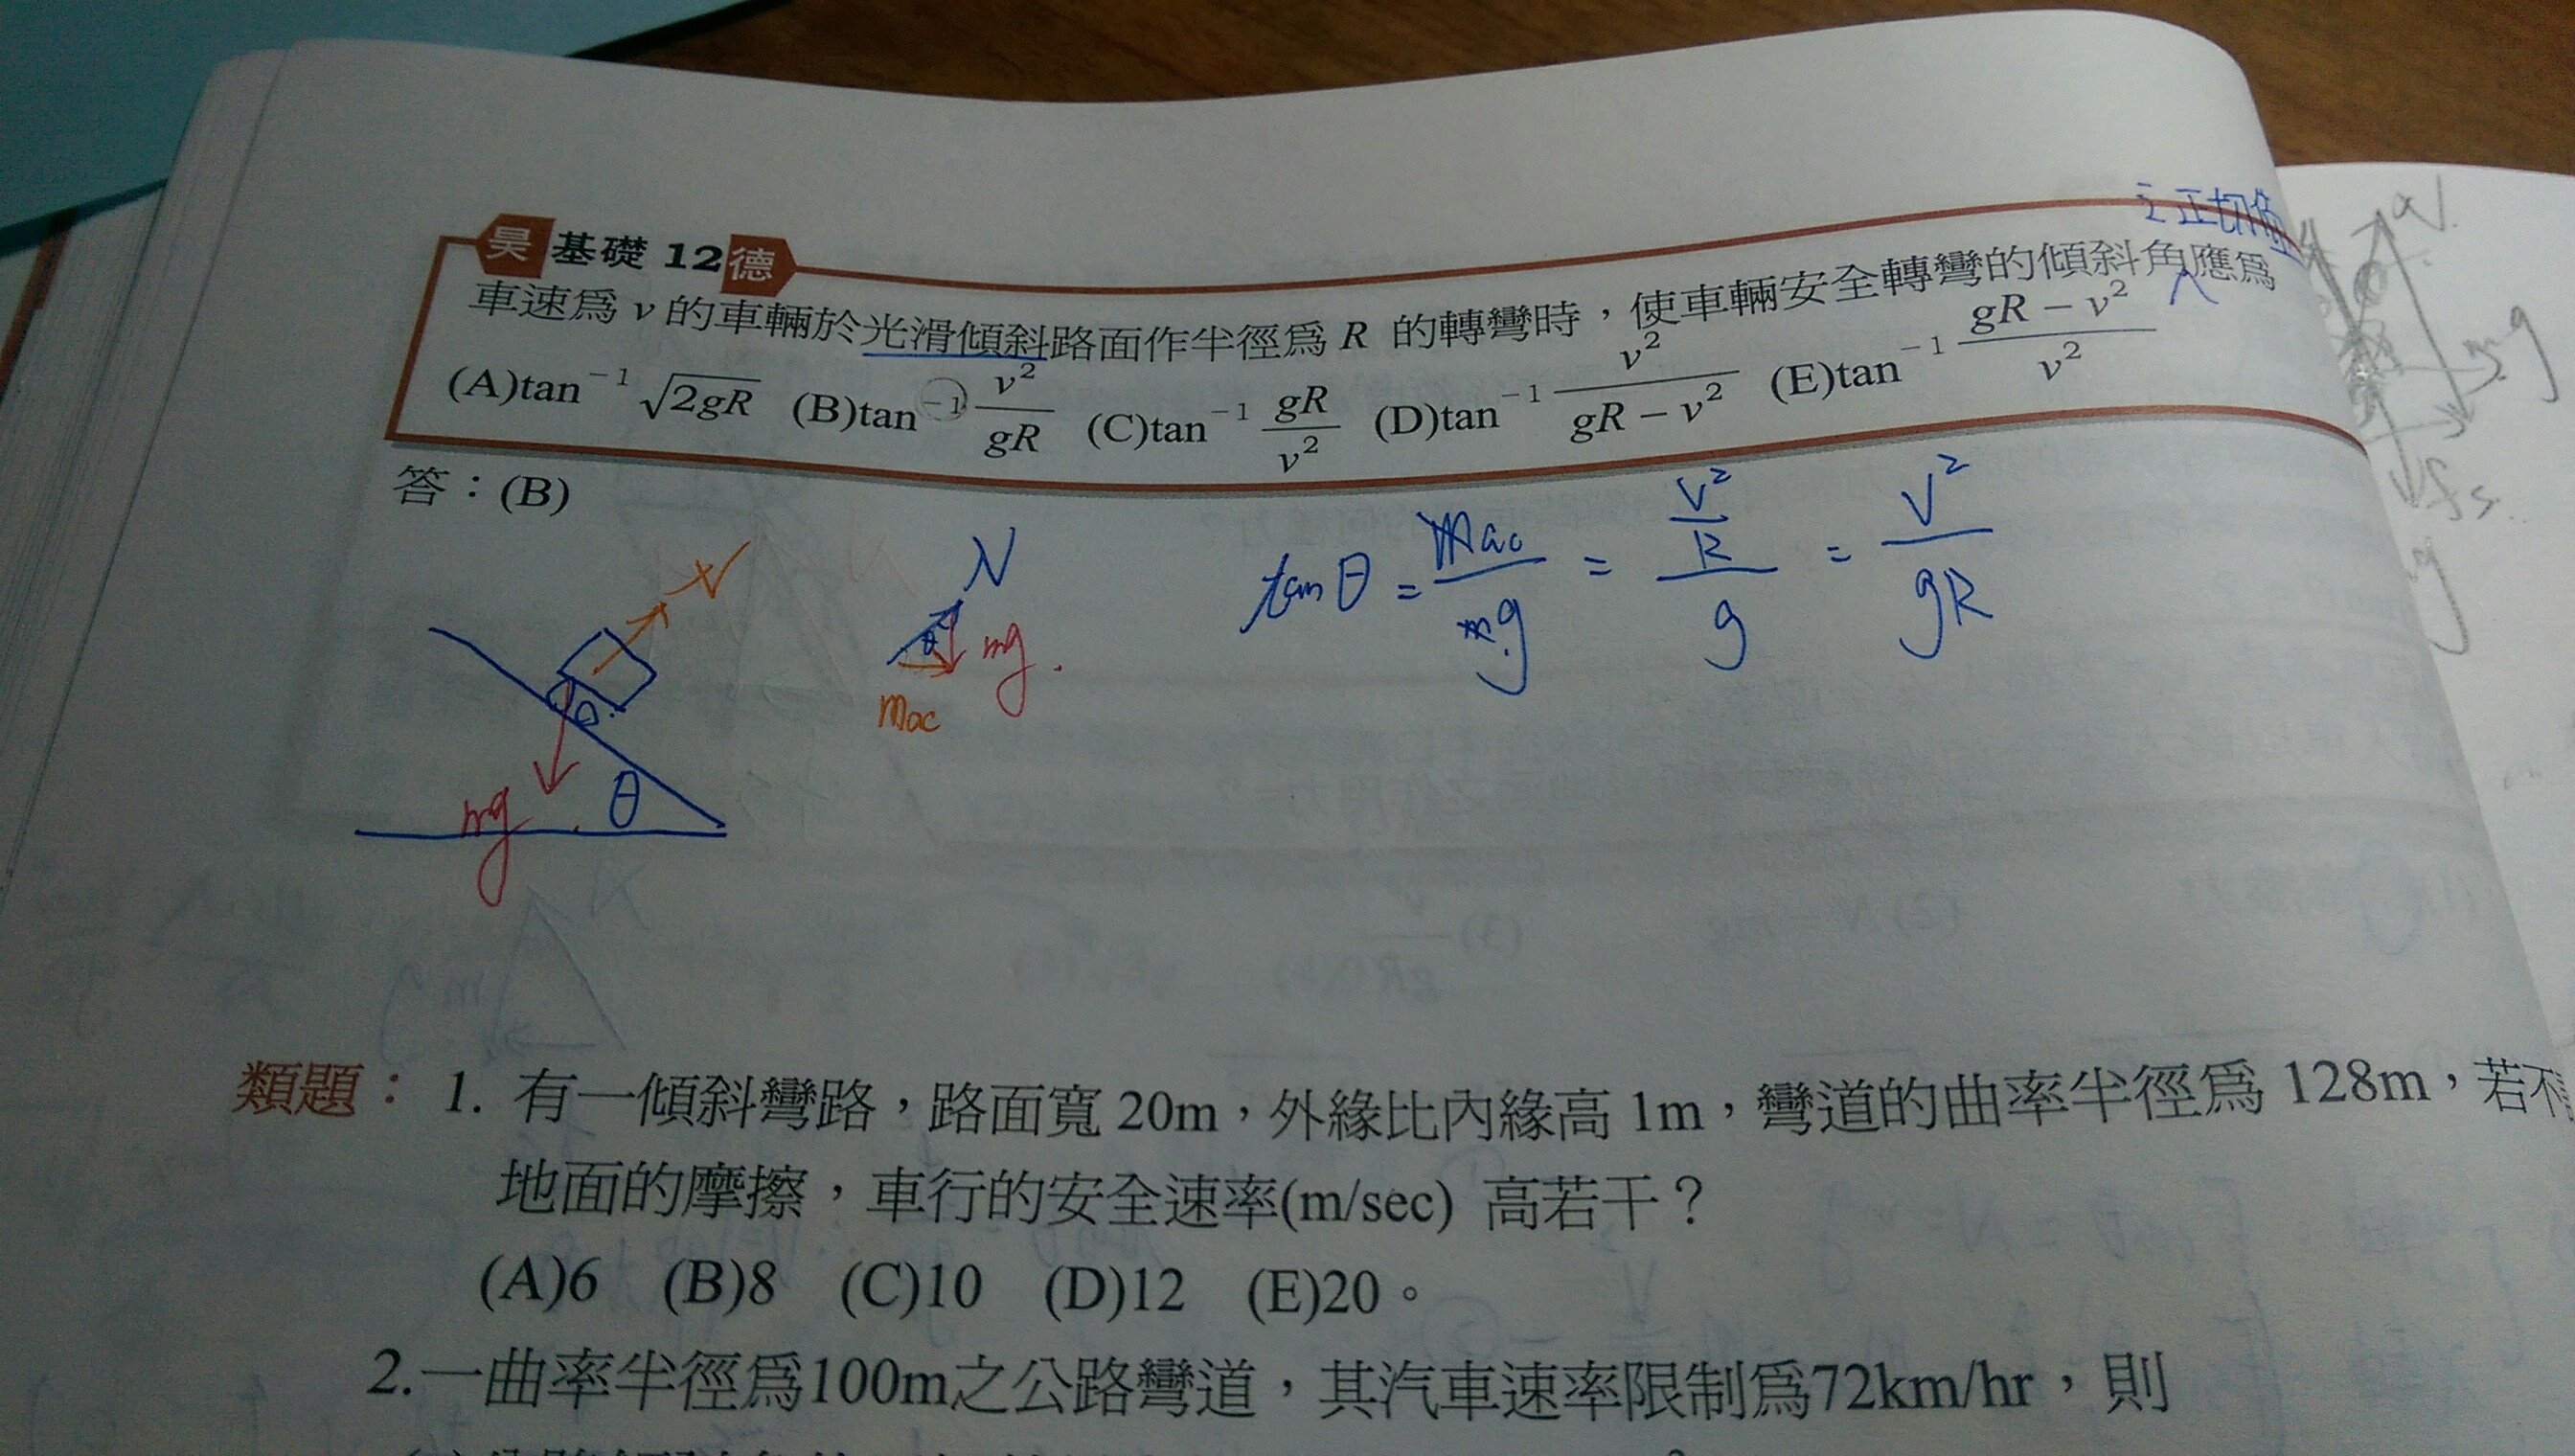 吴 基礎 12 德
之正切角
車速爲 v 的車輛於光滑傾斜路面作半徑爲 R 的轉彎時，使車輛安全轉彎的傾斜角應爲
(A)tan⁻¹ √2gR (B)tan⁻¹ v²/gR (C)tan⁻¹ gR/v² (D)tan⁻¹ v²/(gR − v²) (E)tan⁻¹ (gR − v²)/v²
答：(B)
N
mg
θ
N
θ
mg
mac
tanθ = mac/mg = (v²/R)/g = v²/gR
N
mg
fs
類題： 1. 有一傾斜彎路，路面寬 20m，外緣比內緣高 1m，彎道的曲率半徑爲 128m，若不
地面的摩擦，車行的安全速率(m/sec) 高若干？
(A)6 (B)8 (C)10 (D)12 (E)20。
2.一曲率半徑爲100m之公路彎道，其汽車速率限制爲72km/hr，則